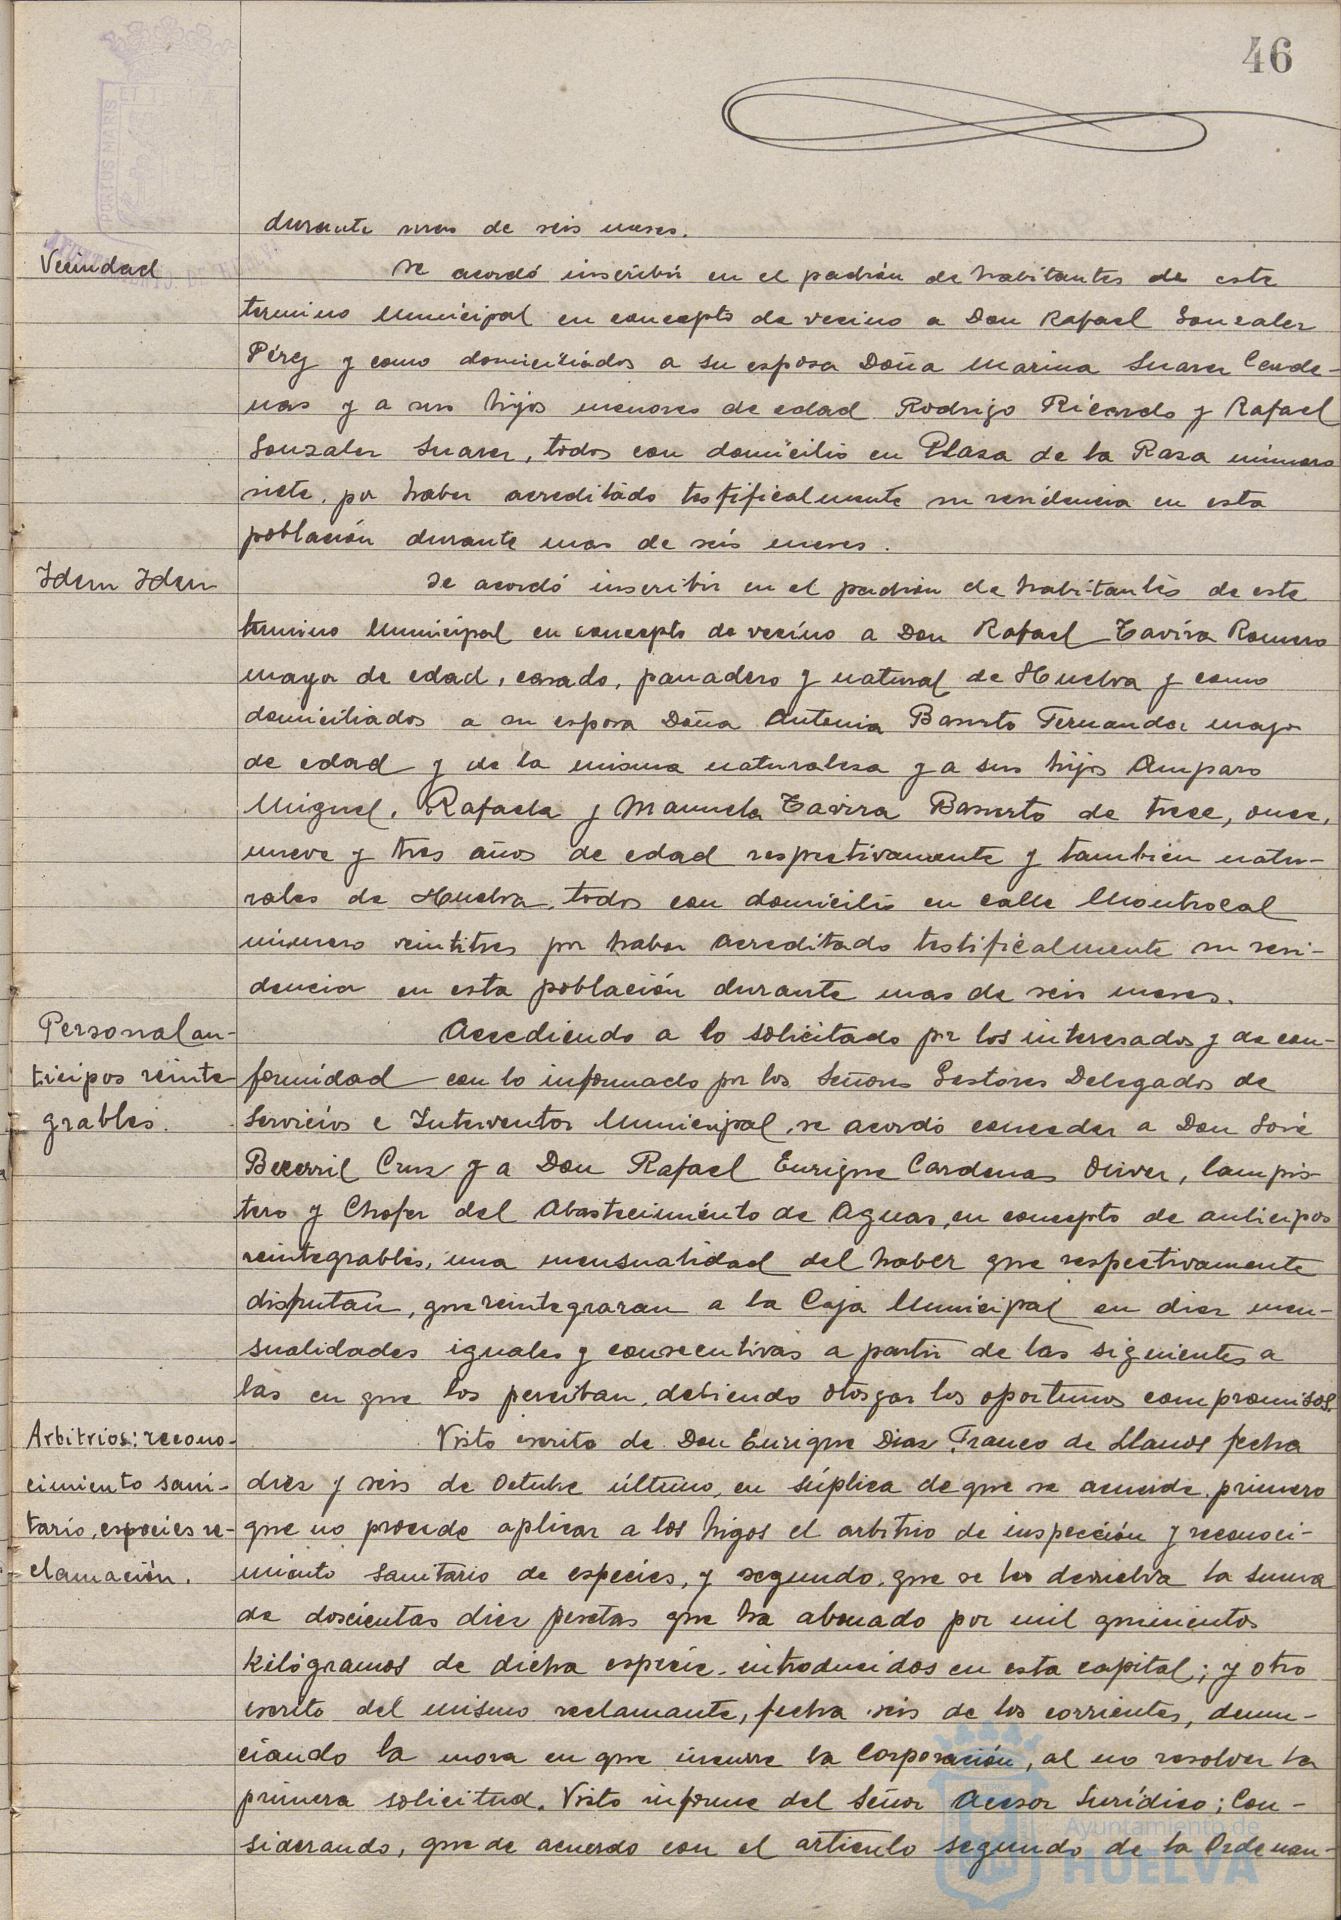 46
PORTUS MARIS
ET TERRÆ
durante mas de seis meses.
Vecindad
Se acordó inscribir en el padrón de habitantes de este
termino Municipal en concepto de vecino a Don Rafael Gonzalez
Pérez y como domiciliados a su esposa Doña Marina Suarez Carde-
nas y a sus hijos menores de edad Rodrigo Ricardo y Rafael
Gonzalez Suarez, todos con domicilio en Plaza de la Raza número
siete, por haber acreditado testificalmente su residencia en esta
población durante mas de seis meses.
Idem Idem
Se acordó inscribir en el padrón de habitantes de este
termino Municipal en concepto de vecino a Don Rafael Tavira Romero
mayor de edad, casado, panadero y natural de Huelva y como
domiciliados a su esposa Doña Antonia Basurto Fernandez mayor
de edad y de la misma naturaleza y a sus hijos Amparo
Miguel, Rafaela y Manuela Tavira Basurto de trece, once,
nueve y tres años de edad respectivamente y tambien natu-
rales de Huelva, todos con domicilio en calle Montrocal
número veintitres por haber acreditado testificalmente su resi-
dencia en esta población durante mas de seis meses.
Personal an-
ticipos reinte
grables.
Accediendo a lo solicitado por los interesados y de con-
formidad con lo informado por los Señores Gestores Delegados de
Servicios e Interventor Municipal, se acordó conceder a Don José
Becerril Cruz y a Don Rafael Enrique Cardenas Oliver, lampis-
tero y Chofer del Abastecimiento de Aguas, en concepto de anticipos
reintegrables, una mensualidad del haber que respectivamente
disfrutan, que reintegraran a la Caja Municipal en diez men-
sualidades iguales y consecutivas a partir de las siguientes a
las en que los perciban, debiendo otorgar los oportunos compromisos.
Arbitrios: recono-
cimiento sani-
tario, especies re-
clamación.
Visto escrito de Don Enrique Diaz Franco de Llanos fecha
diez y seis de Octubre último, en súplica de que se acuerde, primero
que no procede aplicar a los higos el arbitrio de inspección y reconoci-
miento sanitario de especies, y segundo, que se les devuelva la suma
de doscientas diez pesetas que ha abonado por mil quinientos
kilógramos de dicha especie, introducidos en esta capital; y otro
escrito del mismo reclamante, fecha seis de los corrientes, denun-
ciando la mora en que incurre la Corporación, al no resolver la
primera solicitud. Visto informe del Señor Asesor Jurídico; Con-
siderando, que de acuerdo con el articulo segundo de la Ordenan-
Ayuntamiento de
HUELVA